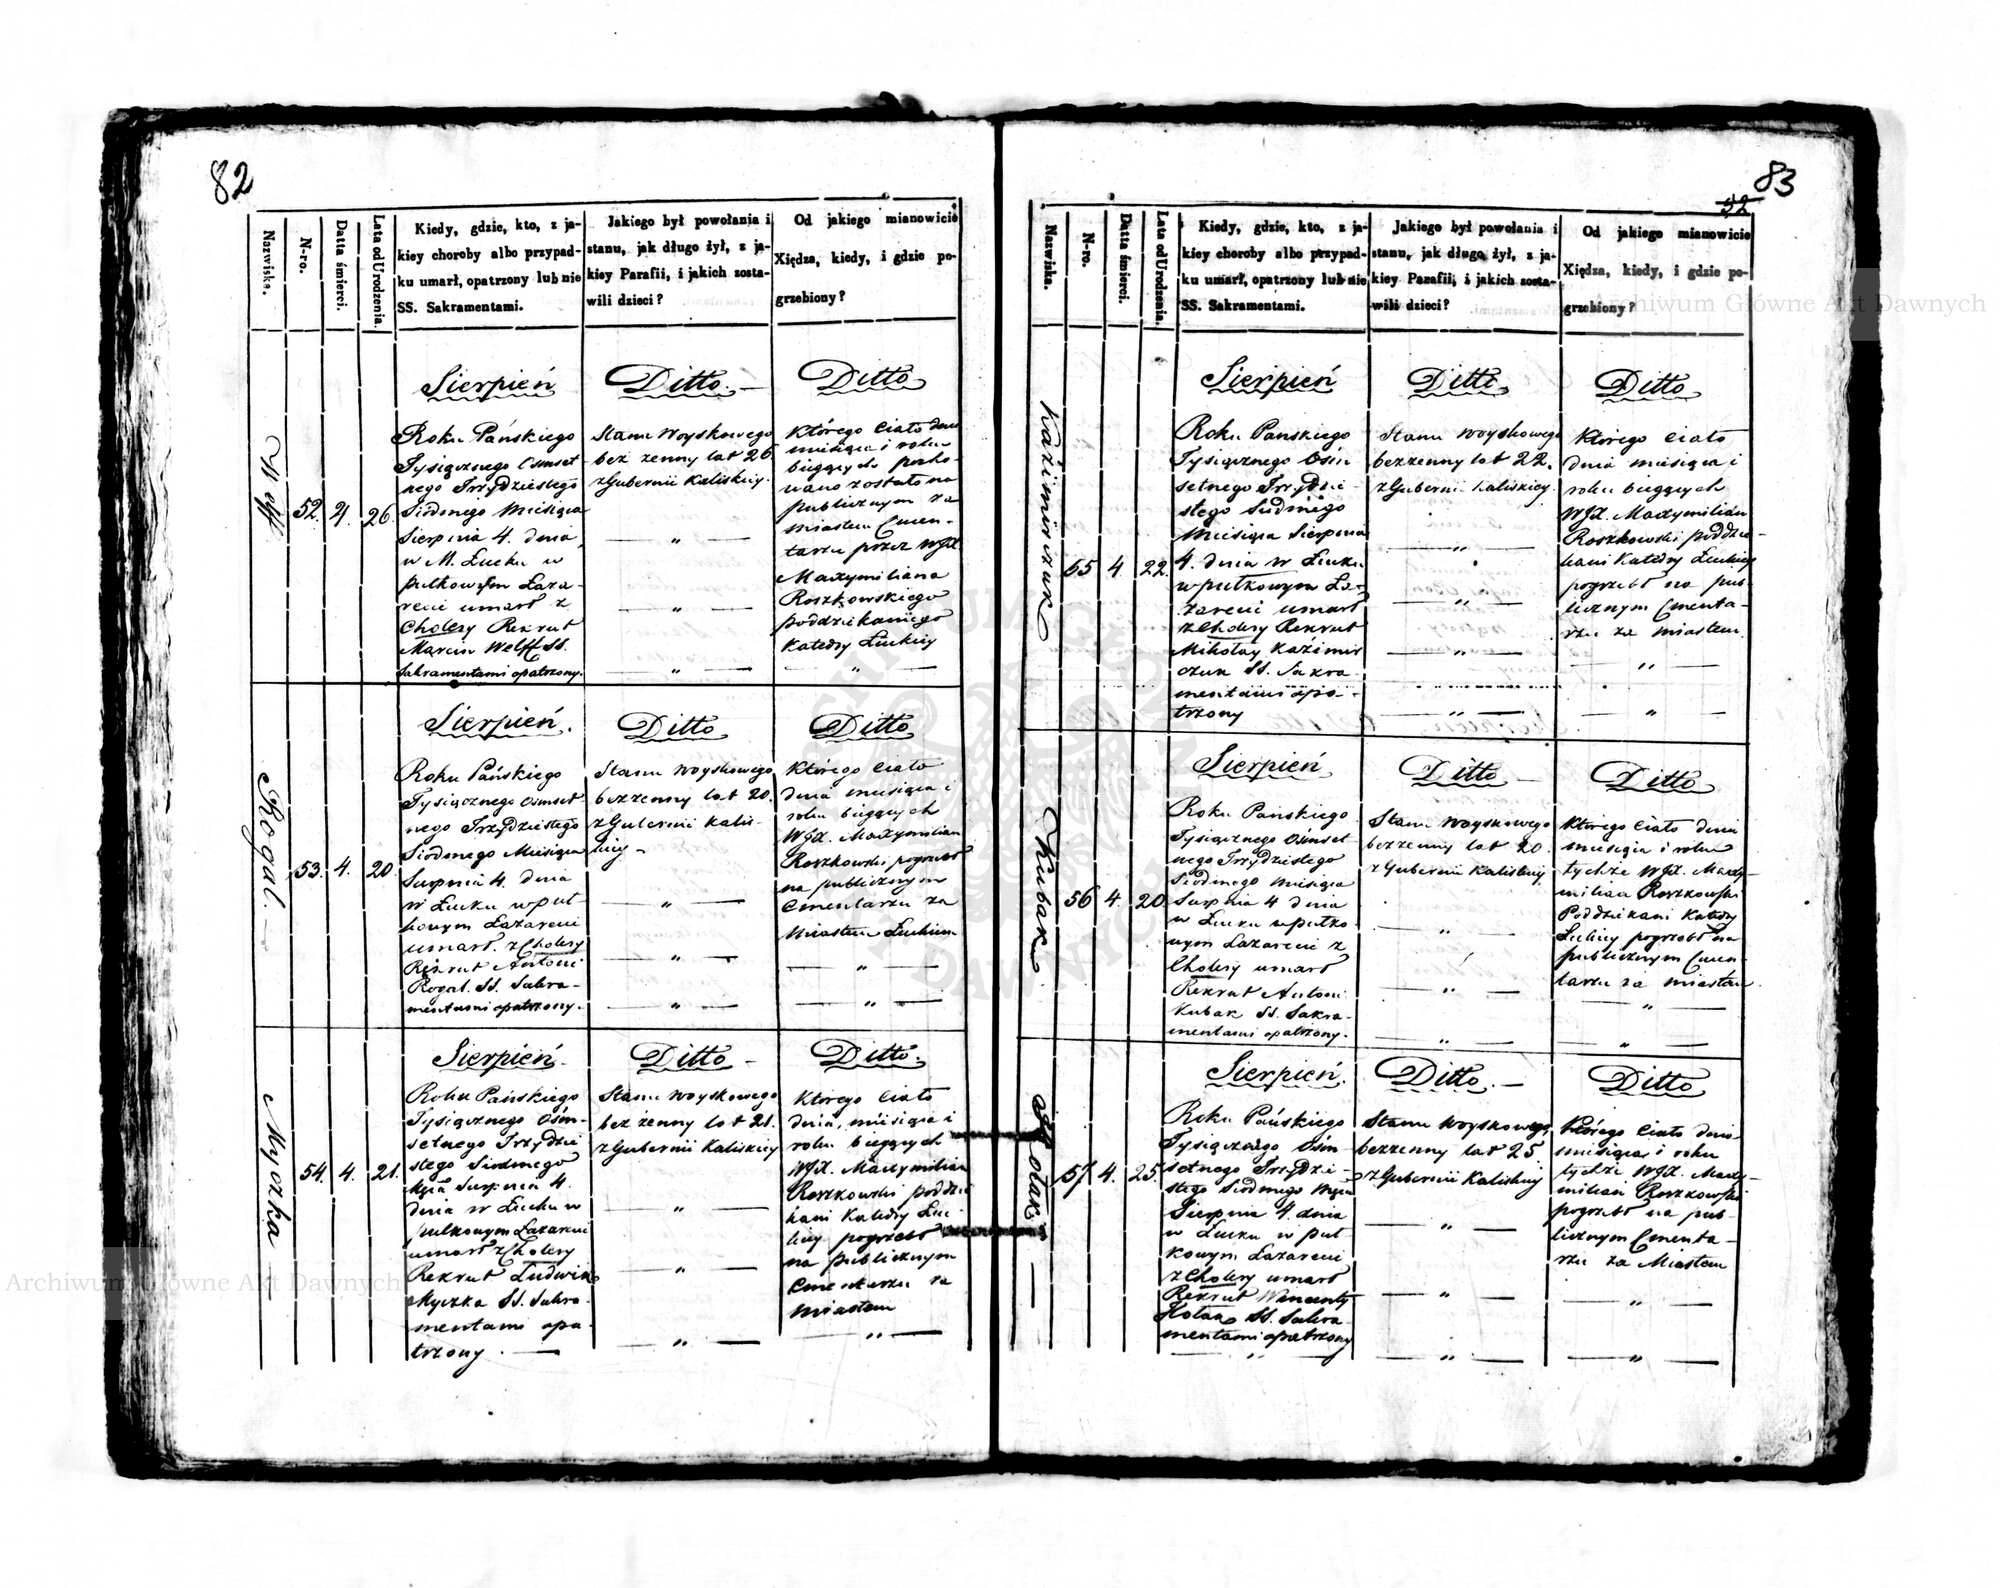 82
Nazwiska.
N-ro.
Datta śmierci.
Lata od Urodzenia.
Kiedy, gdzie, kto, z ja-
kiey choroby albo przypad-
ku umarł, opatrzony lub nie
SS. Sakramentami.
Jakiego był powołania i
stanu, jak długo żył, z ja-
kiey Parafii, i jakich zosta-
wili dzieci?
Od jakiego mianowicie
Xiędza, kiedy, i gdzie po-
grzebiony?
Welff
52.
4.
26.
Sierpień
Roku Pańskiego
Tysiącznego Osmset-
nego Trzydziestego
Siodmego Miesiąca
Sierpnia 4. dnia
w M. Łucku w
pułkowym Łaza-
recie umarł z
Cholery Rekrut
Marcin Welff SS.
Sakramentami opatrzony.
Ditto.
Stanu Woyskowego
bez żenny lat 26
z Gubernii Kaliskiey.
Ditto
Którego Ciało dnia
miesiąca i roku
bieggących pocho-
wano zostało na
publicznym za
miastem Cmen-
tarzu przez WJX.
Maxymiliana
Roszkowskiego
poddziekaniego
Katedry Łuckiey
Rogal.
53.
4.
20.
Sierpień.
Roku Pańskiego
Tysiącznego Osmset-
nego Trzydziestego
Siodmego Miesiąca
Sierpnia 4. dnia
w Łucku w puł
kowym Łazarecie
umarł z Cholery
Rekrut Antoni
Rogal. SS. Sakra-
mentami opatrzony.
Ditto
Stanu Woyskowego
bezżenny lat 20.
z Gubernii Kalis-
kiey
Ditto
Którego Ciało
dnia miesiąca i
roku bieggących
WJX. Maxymilian
Roszkowski pogrzebł
na publicznym
Cmentarzu za
Miastem Łuckiem
Myczka
54.
4.
21.
Sierpień.
Roku Pańskiego
Tysiącznego Ośm-
setnego Trzydzie
stego Siodmego
Mca Sierpnia 4.
dnia w Łucku w
pułkowym Łazarecie
umarł z Cholery
Rekrut Ludwik
Myczka SS. Sakra-
mentami opa-
trzony.
Ditto
Stanu Woyskowego
bez żenny lat 21.
z Gubernii Kaliskiey
Ditto.
Którego Ciało
dnia, miesiąca i
roku bieggących
WJX. Maxymilian
Roszkowski poddzie
kani Katedry Łuc-
kiey pogrzebł
na publicznym
Cmentarzu za
Miastem
83
52
Nazwiska.
N-ro.
Datta śmierci.
Lata od Urodzenia.
Kiedy, gdzie, kto, z ja-
kiey choroby albo przypad-
ku umarł, opatrzony lub nie
SS. Sakramentami.
Jakiego był powołania i
stanu, jak długo żył, z ja-
kiey Parafii, i jakich zosta-
wili dzieci?
Od jakiego mianowicie
Xiędza, kiedy, i gdzie po-
grzebiony?
Kaźimirczuk
55
4
22.
Sierpień
Roku Pańskiego
Tysiącznego Ośm
setnego Trzydzie-
stego Siodmego
Miesiąca Sierpnia
4. dnia w Łucku
w pułkowym Ła-
zarecie umarł
z Cholery Rekrut
Mikołay Kaźimir
czuk SS. Sakra-
mentami opa-
trzony
Ditto
Stanu Woyskowego
bezżenny lat 22.
z Gubernii Kaliskiey.
Ditto
Którego Ciało
dnia miesiąca i
roku bieggących
WJX. Maxymilian
Roszkowski poddzie-
kani Katedry Łuckiey
pogrzebł na pub-
licznym Cmenta-
rzu za miastem
Kubak
56
4.
20
Sierpień
Roku Pańskiego
Tysiącznego Ośmset-
nego Trzydziestego
Siodmego Miesiąca
Sierpnia 4 dnia
w Łucku w pułko-
wym Łazarecie z
Cholery umarł
Rekrut Antoni
Kubak SS. Sakra-
mentami opatrzony.
Ditto
Stanu Woyskowego
bezżenny lat 20.
z Gubernii Kaliskiey
Ditto
Którego Ciało dnia
miesiąca i roku
tychże WJX. Maxy-
milian Roszkowski
Poddziekani Katedry
Łuckiey pogrzebł na
publicznym Cmen-
tarzu za miastem
57
4.
25.
Sierpień.
Roku Pańskiego
Tysiącznego Ośm-
setnego Trzydzie-
stego Siodmego Mca
Sierpnia 4. dnia
w Łucku w puł-
kowym Łazarecie
z Cholery umarł
Rekrut Wincenty
SS. Sakra-
mentami opatrzony
Ditto.
Stanu Woyskowego,
bezżenny lat 25
z Gubernii Kaliskiey
Ditto
Którego Ciało dnia
miesiąca i roku
tychże WJX. Maxy-
milian Roszkowski
pogrzebł na pub-
licznym Cmenta-
rzu za Miastem
Archiwum Główne Akt Dawnych
Archiwum Główne Akt Dawnych